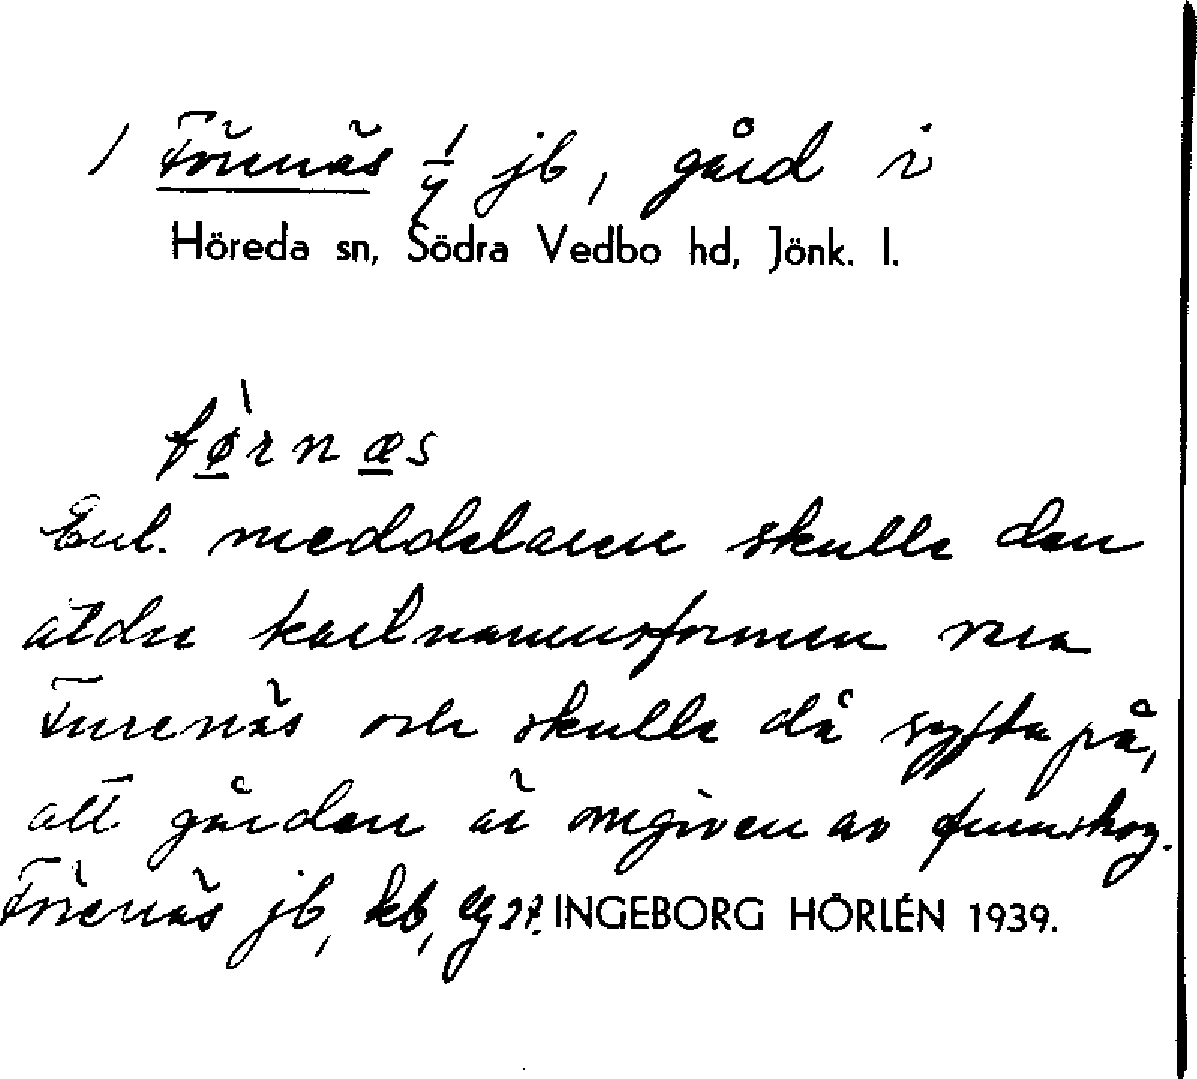 1 Förenäs 1/4 jb, gård i
Höreda sn, Södra Vedbo hd, Jönk. l.
fø̱̀rnæ̱s
Enl. meddelaren skulle den
äldre kortnamnsformen vara
Furenäs och skulle då syfta på,
att gården är omgiven av furuskog.
Förenäs jb, kb, Eg 27. INGEBORG HÖRLÉN 1939.